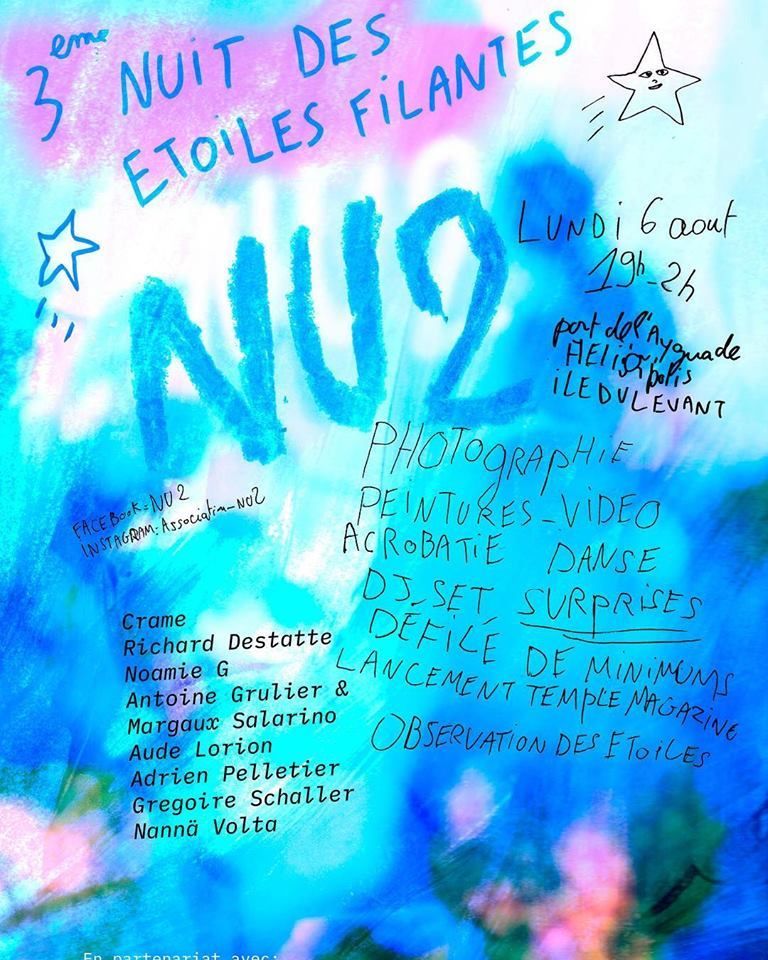 3eme NUIT DES
ETOILES FILANTES
NU2
LUNDI 6 aout
19h-2h
port de l'Ayguade
HELIOPOLIS
ILE DU LEVANT
PHOTOGRAPHIE
PEINTURES-VIDEO
ACROBATIE DANSE
DJ-SET SURPRISES
DÉFILÉ DE MINIMUMS
LANCEMENT TEMPLE MAGAZINE
OBSERVATION DES ETOILES
FACEBOOK=NU2
INSTAGRAM: Association_NU2
Crame
Richard Destatte
Noamie G
Antoine Grulier &
Margaux Salarino
Aude Lorion
Adrien Pelletier
Gregoire Schaller
Nannä Volta
En partenariat avec: